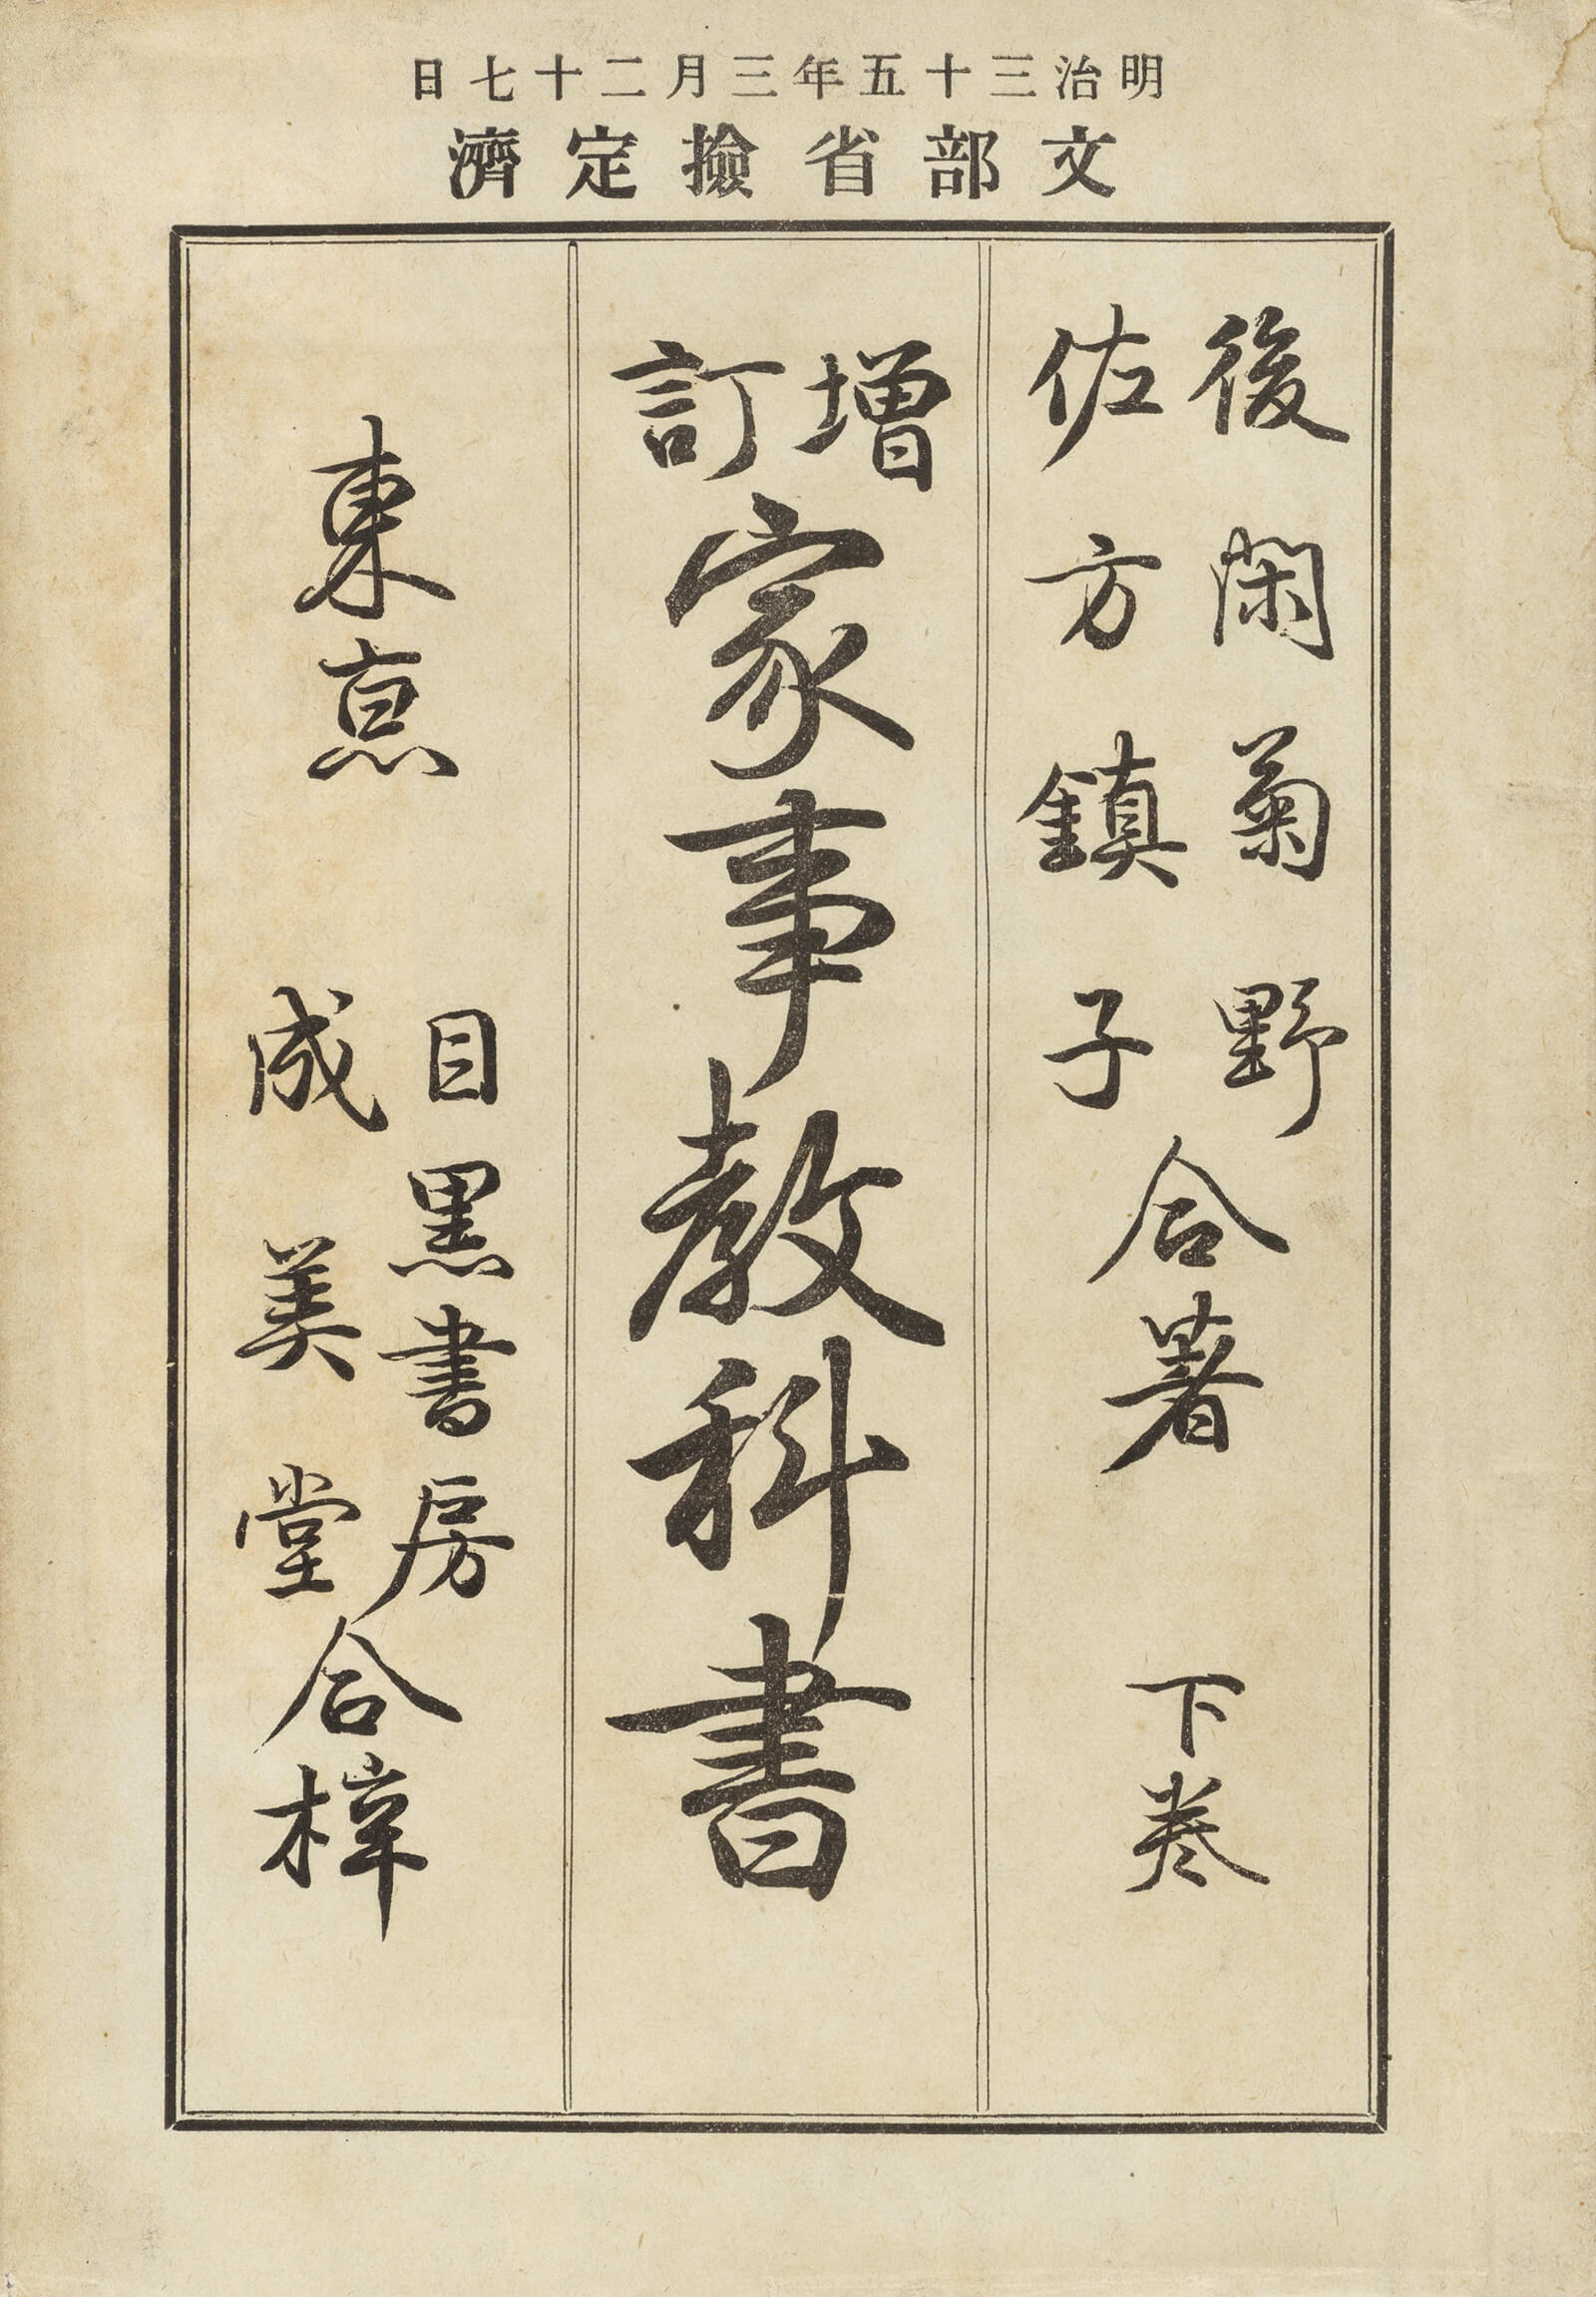 明治三十五年三月二十七日
文部省撿定濟
後閑菊野
佐方鎮子
合著
下巻
增訂
家事教科書
東京
目黒書房
成美堂
合梓